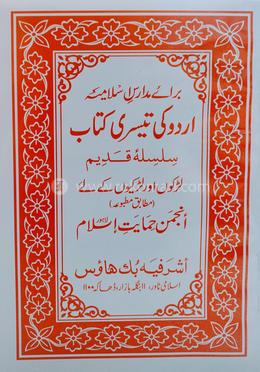 برائے مدارس اسلامیہ
اردو کی تیسری کتاب
سلسلہ قدیم
لڑکوں اور لڑکیوں کے لئے
(مطابق مطبوعہ)
انجمن حمایت اسلام لاہور
اشرفیہ بک ھاؤس
اسلامی ٹاور، ۱۱ بنگلہ بازار، ڈھاکہ ۱۱۰۰